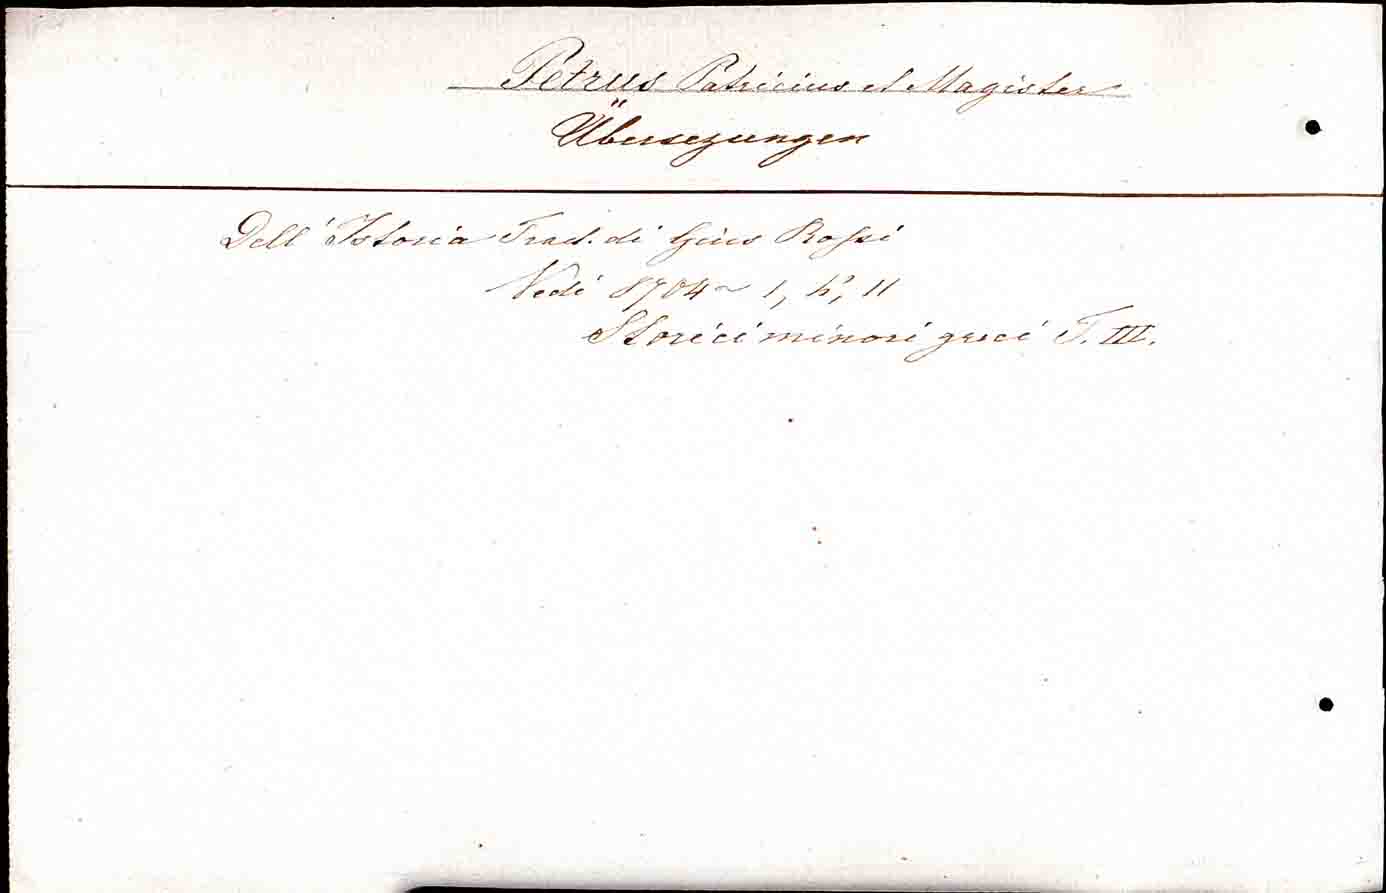 Petrus Patricius et Magister
Übersezungen
Dell' Istoria Trad. di Gius Rossi
Vedi 8704~ 1, h, 11
Storici minori greci T. III.